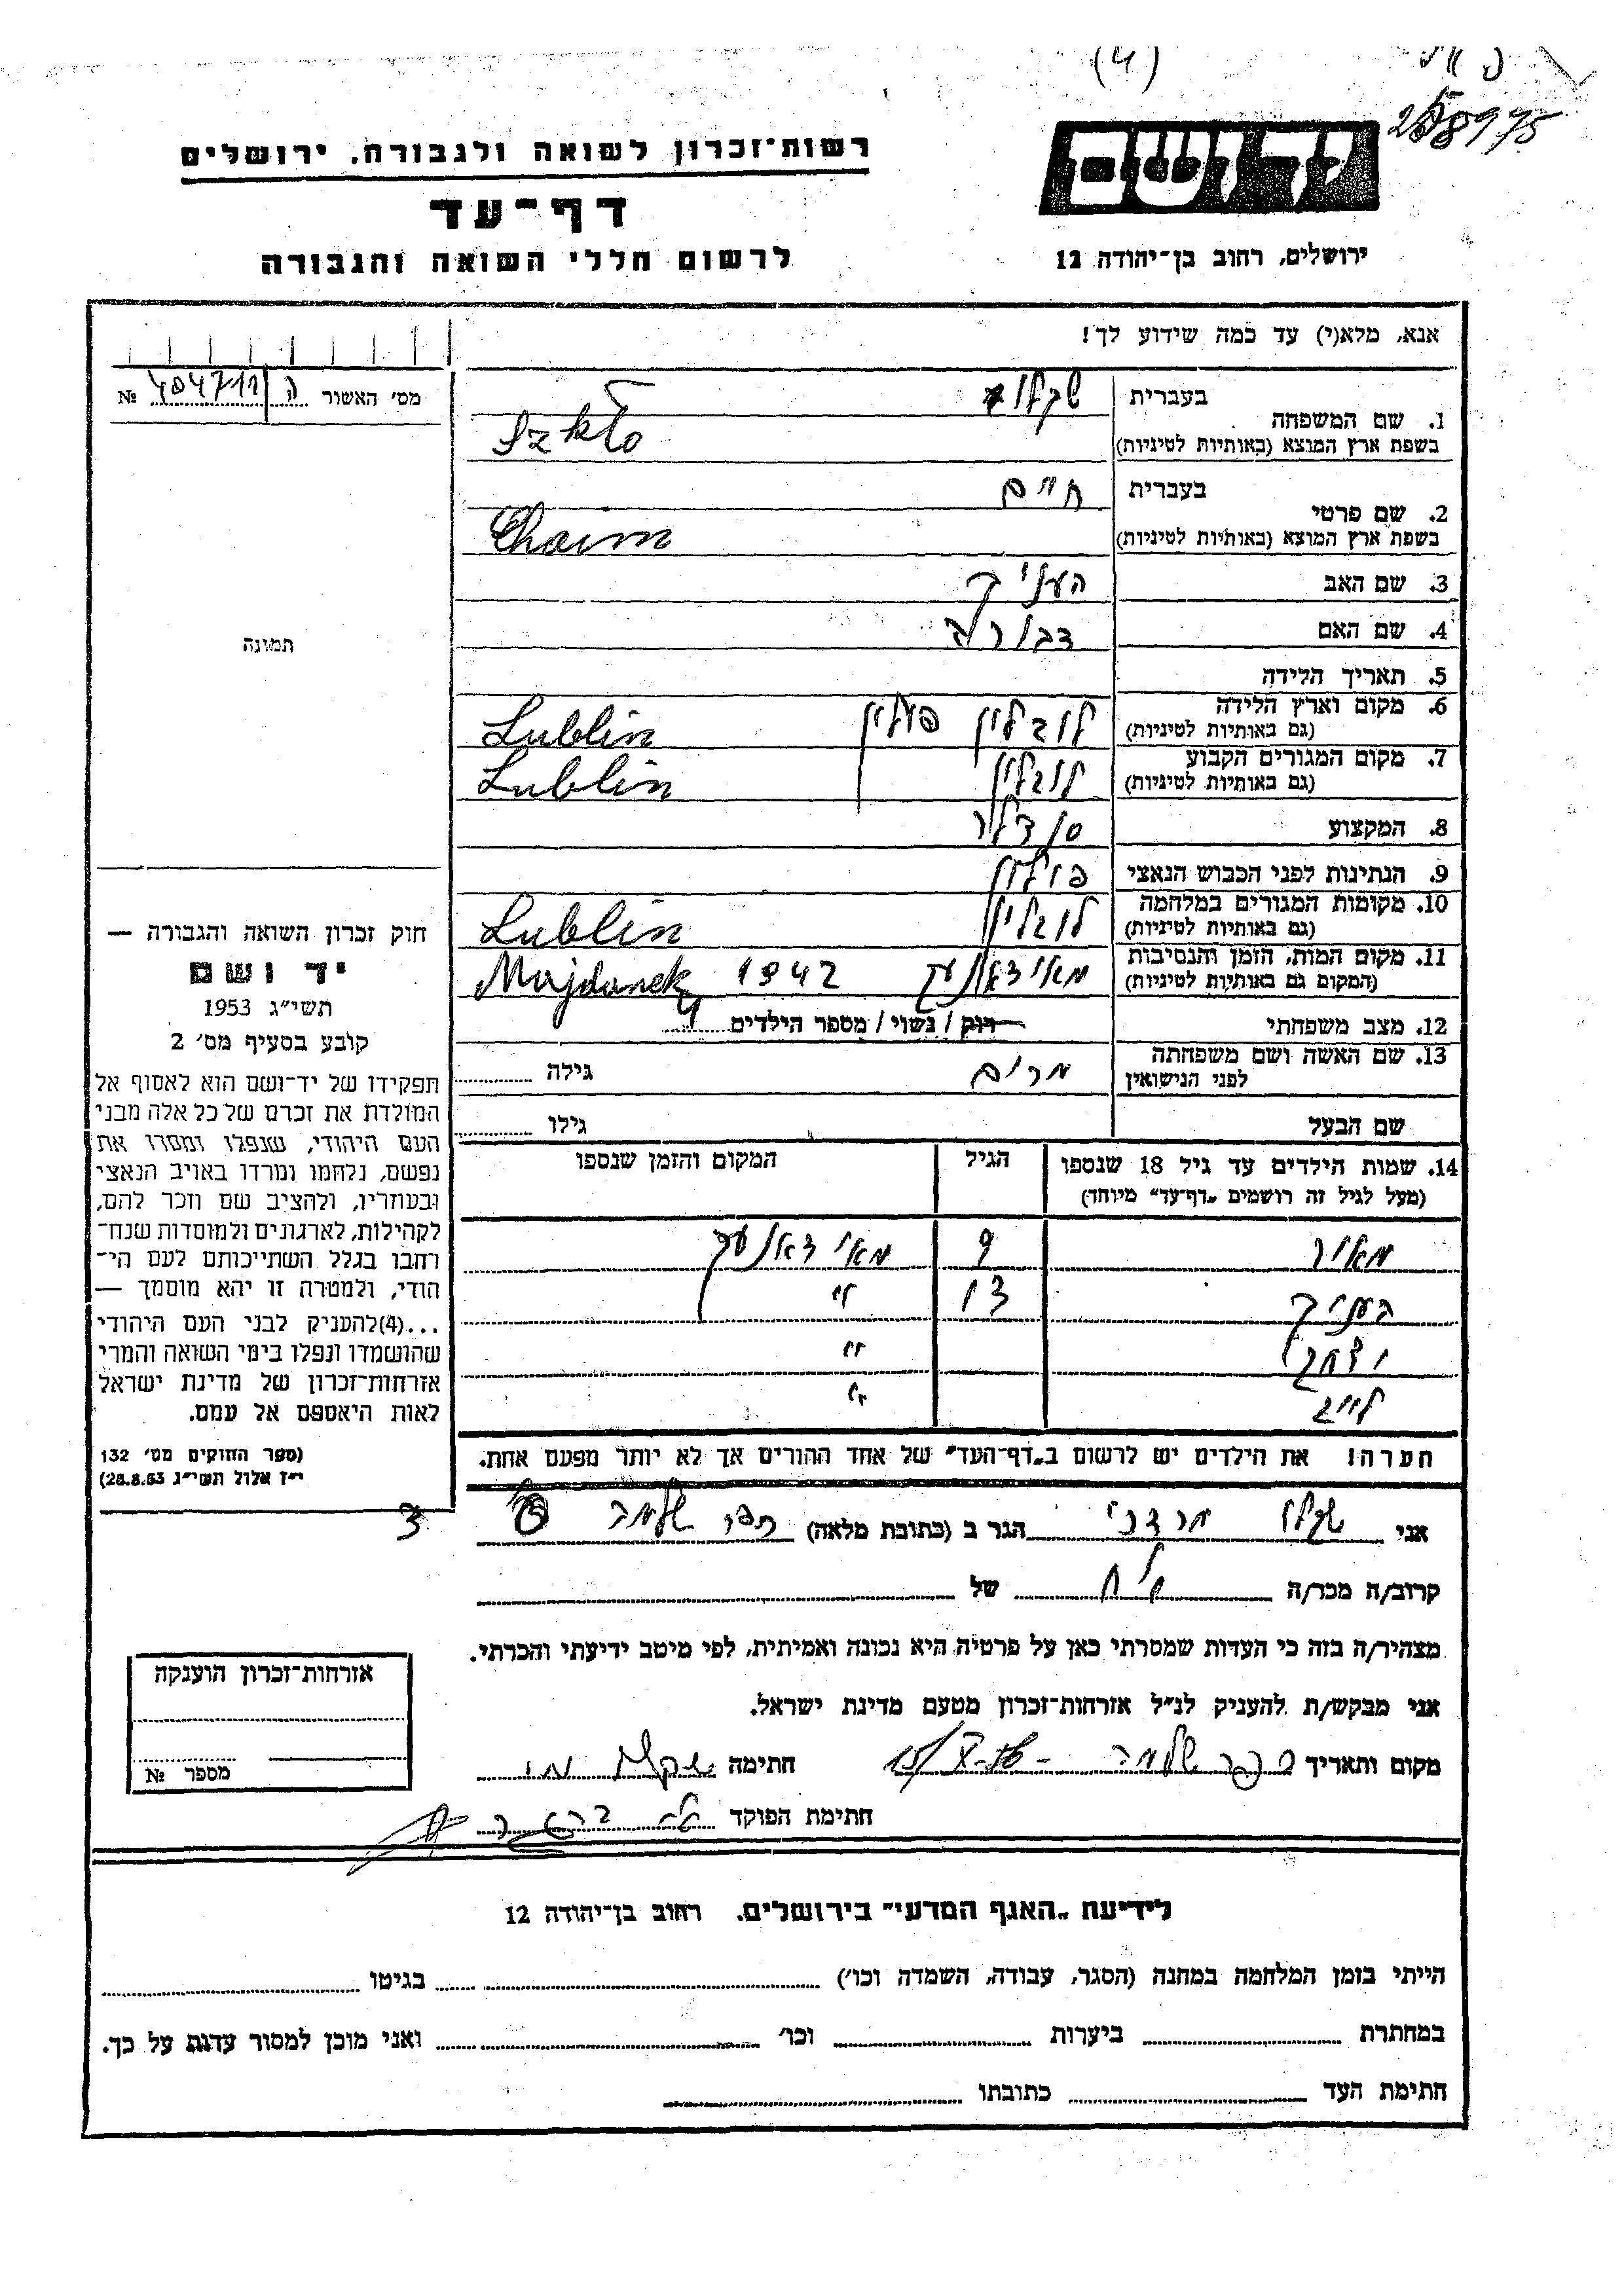 (4)
258975
רשות־זכרון לשואה ולגבורה, ירושלים
יד ושם
דף־עד
לרשום חללי השואה והגבורה
ירושלים, רחוב בן־יהודה 12
אנא, מלא(י) עד כמה שידוע לך!
מס' האשור
№
1. שם המשפחה
בעברית
שקלו
בשפת ארץ המוצא (באותיות לטיניות)
Szkło
2. שם פרטי
בעברית
חיים
בשפת ארץ המוצא (באותיות לטיניות)
Chaim
3. שם האב
העניך
4. שם האם
דבורה
5. תאריך הלידה
6. מקום וארץ הלידה
(גם באותיות לטיניות)
לובלין פולין Lublin
7. מקום המגורים הקבוע
(גם באותיות לטיניות)
לובלין Lublin
8. המקצוע
סנדלר
9. הנתינות לפני הכבוש הנאצי
פולין
10. מקומות המגורים במלחמה
(גם באותיות לטיניות)
לובלין Lublin
11. מקום המות, הזמן והנסיבות
(המקום גם באותיות לטיניות)
מאידאנעק 1942 Majdanek
12. מצב משפחתי
רוק / נשוי / מספר הילדים 4
13. שם האשה ושם משפחתה
לפני הנישואין
מרים
גילה
שם הבעל
גילו
14. שמות הילדים עד גיל 18 שנספו
(מעל לגיל זה רושמים „דף־עד" מיוחד)
הגיל
המקום והזמן שנספו
מאיר 9 מאידאנעק
העניך 13 "
יצחק "
לייב "
הערה! את הילדים יש לרשום ב„דף־העד" של אחד ההורים אך לא יותר מפעם אחת.
תמונה
חוק זכרון השואה והגבורה —
יד ושם
תשי"ג 1953
קובע בסעיף מס' 2
תפקידו של יד־ושם הוא לאסוף אל
המולדת את זכרם של כל אלה מבני
העם היהודי, שנפלו ומסרו את
נפשם, נלחמו ומרדו באויב הנאצי
ובעוזריו, ולהציב שם וזכר להם,
לקהילות, לארגונים ולמוסדות שנח־
רבו בגלל השתייכותם לעם הי־
הודי, ולמטרה זו יהא מוסמך —
...(4)להעניק לבני העם היהודי
שהושמדו ונפלו בימי השואה והמרי
אזרחות־זכרון של מדינת ישראל
לאות היאספם אל עמם.
(ספר החוקים מס' 132
י"ז אלול תשי"ג 28.8.53)
אני שקלו מרדכי הגר ב (כתובת מלאה) כפר שלמה
קרוב/ה מכר/ה אח של
מצהיר/ה בזה כי העדות שמסרתי כאן על פרטיה היא נכונה ואמיתית, לפי מיטב ידיעתי והכרתי.
אני מבקש/ת להעניק לנ"ל אזרחות־זכרון מטעם מדינת ישראל.
מקום ותאריך כפר שלמה חתימה
חתימת הפוקד
אזרחות־זכרון הוענקה
מספר №
לידיעת „האגף המדעי" בירושלים. רחוב בן־יהודה 12
הייתי בזמן המלחמה במחנה (הסגר, עבודה, השמדה וכו') בגיטו
במחתרת ביערות וכו' ואני מוכן למסור עדות על כך.
חתימת העד כתובתו